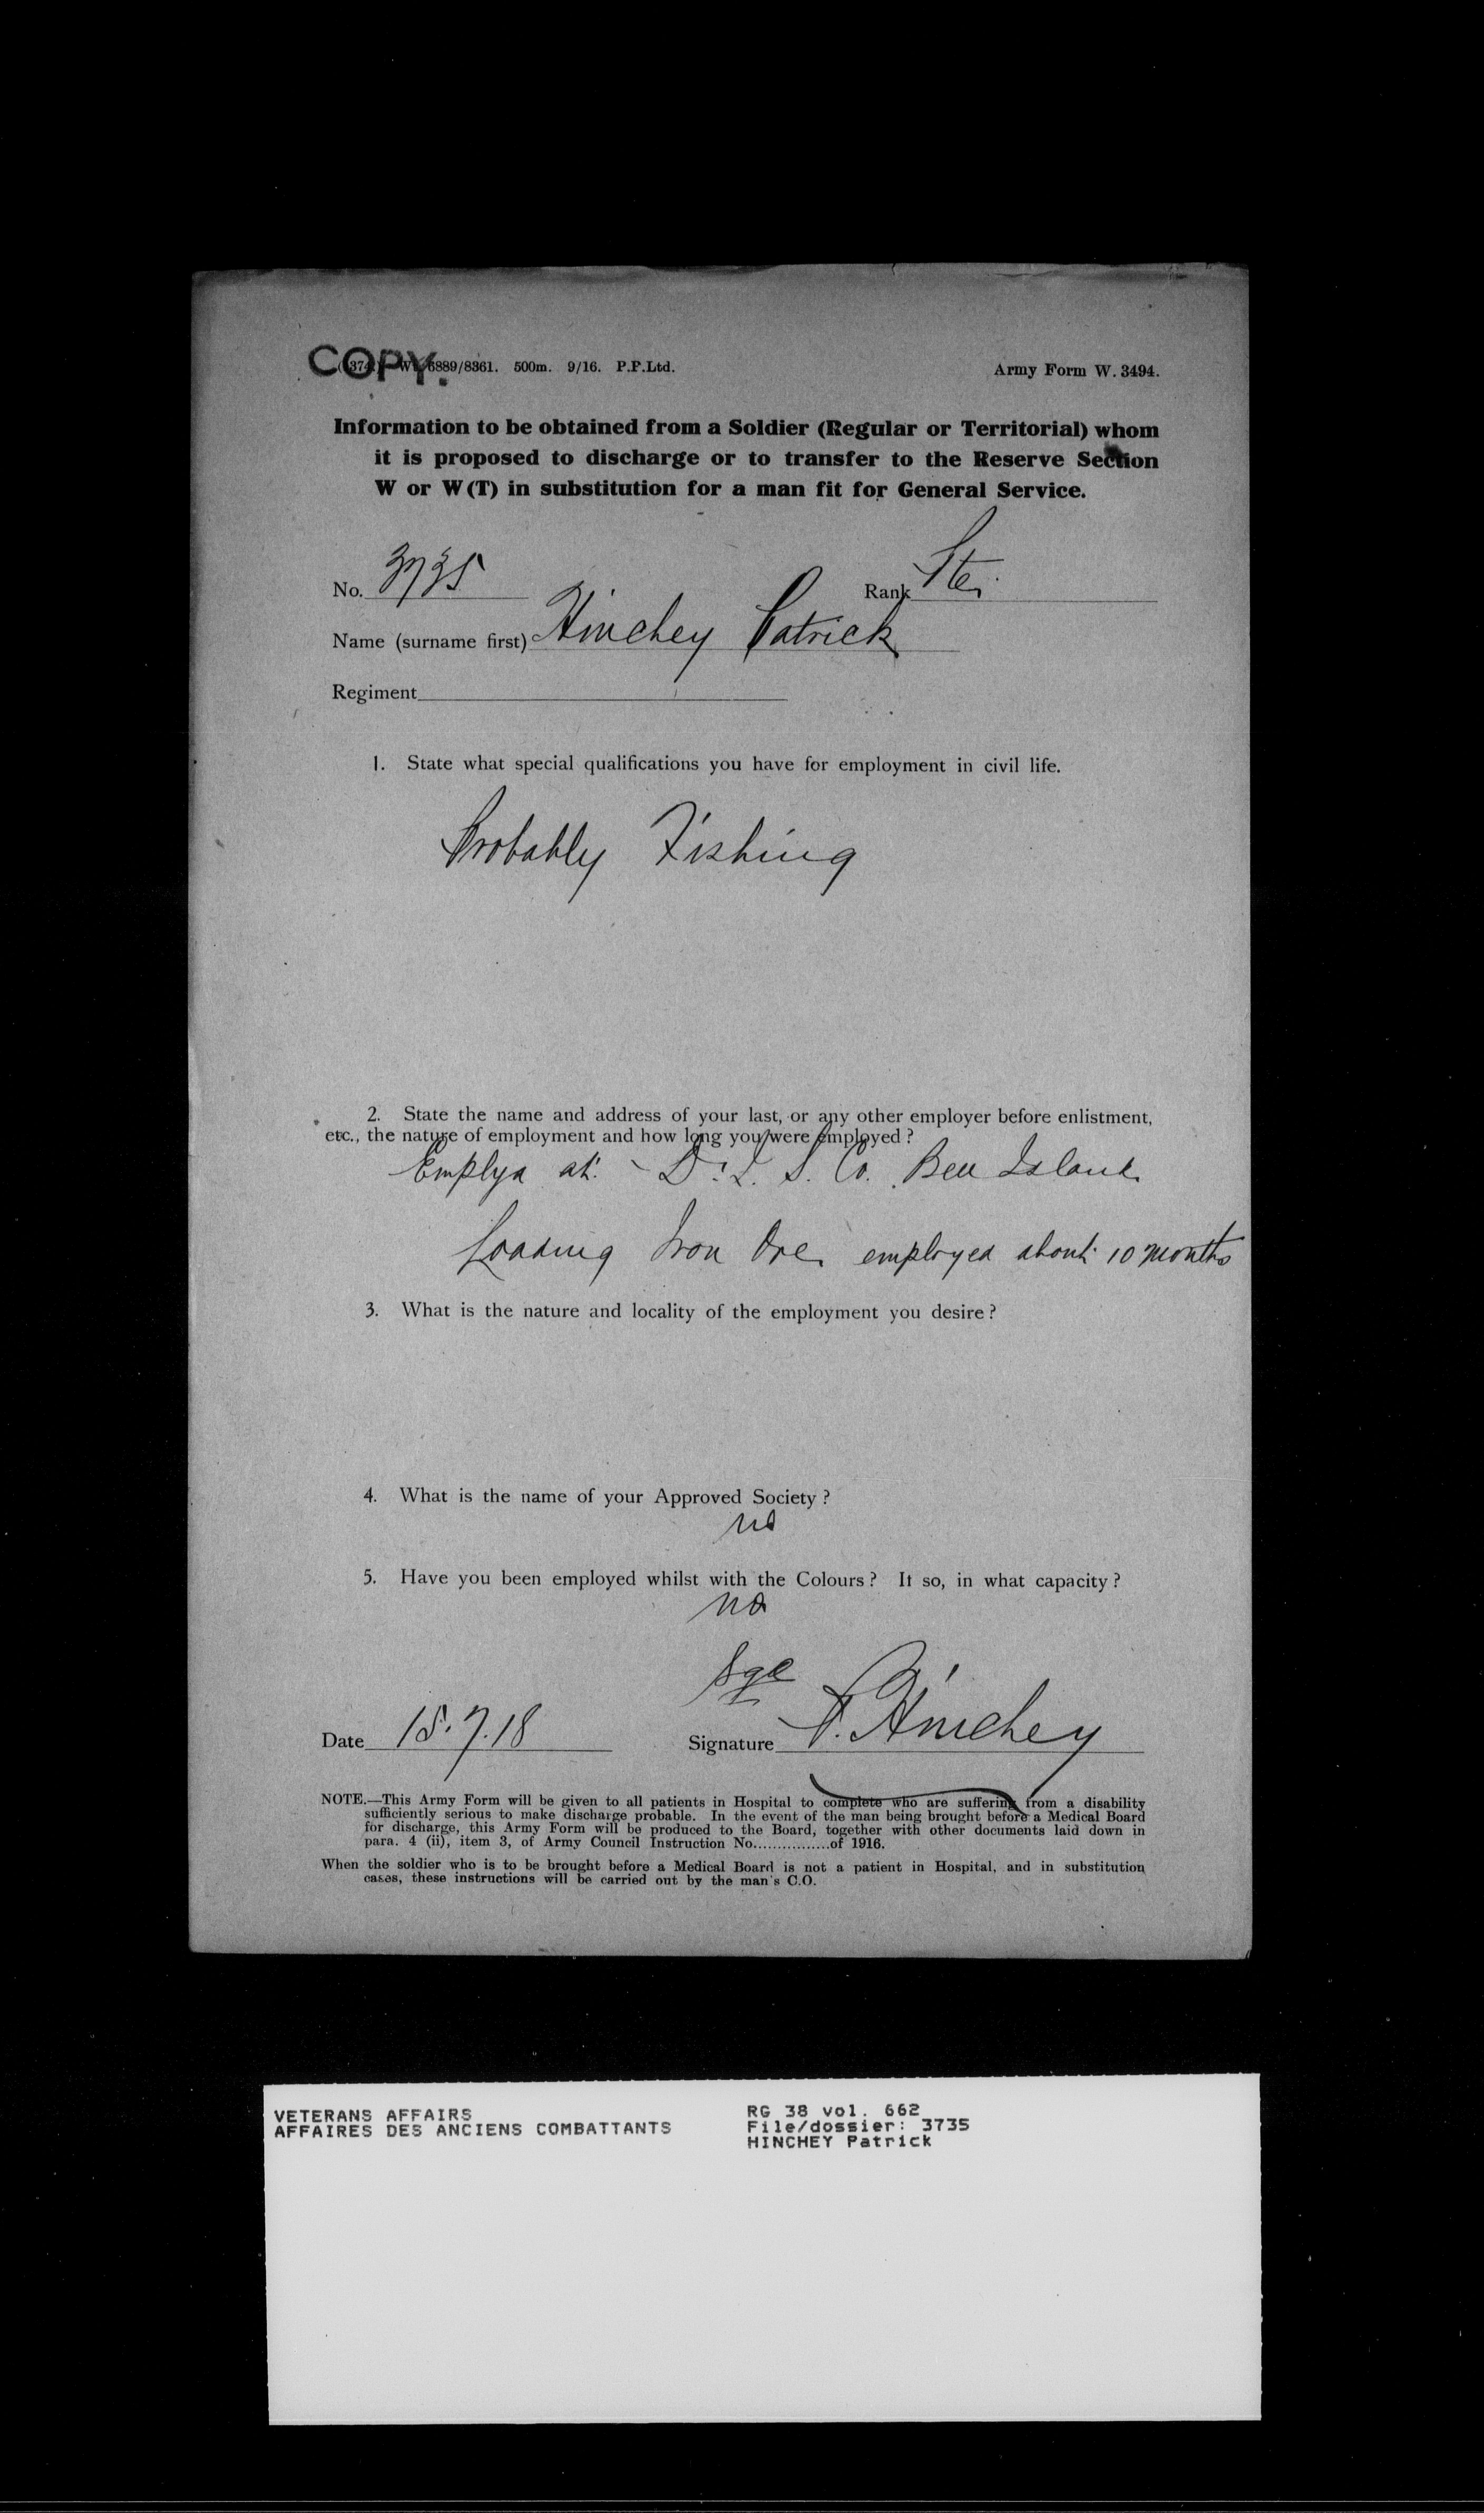 COPY.
6889/8361. 500m. 9/16. P.P.Ltd.
Army Form W. 3494.
Information to be obtained from a Soldier (Regular or Territorial) whom
it is proposed to discharge or to transfer to the Reserve Section
W or W(T) in substitution for a man fit for General Service.
No. 3735 Rank Pte.
Name (surname first) Hinchey Patrick
Regiment
1. State what special qualifications you have for employment in civil life.
Probably Fishing
2. State the name and address of your last, or any other employer before enlistment,
etc., the nature of employment and how long you were employed?
Emplyd at - D. I. S. Co. Bell Island
Loading Iron Ore, employed about 10 months
3. What is the nature and locality of the employment you desire?
4. What is the name of your Approved Society?
no
5. Have you been employed whilst with the Colours? It so, in what capacity?
no
Sgd
Date 15.7.18 Signature P. Hinchey
NOTE.—This Army Form will be given to all patients in Hospital to complete who are suffering from a disability
sufficiently serious to make discharge probable. In the event of the man being brought before a Medical Board
for discharge, this Army Form will be produced to the Board, together with other documents laid down in
para. 4 (ii), item 3, of Army Council Instruction No................of 1916.
When the soldier who is to be brought before a Medical Board is not a patient in Hospital, and in substitution
cases, these instructions will be carried out by the man's C.O.
VETERANS AFFAIRS
AFFAIRES DES ANCIENS COMBATTANTS
RG 38 vol. 662
File/dossier: 3735
HINCHEY Patrick